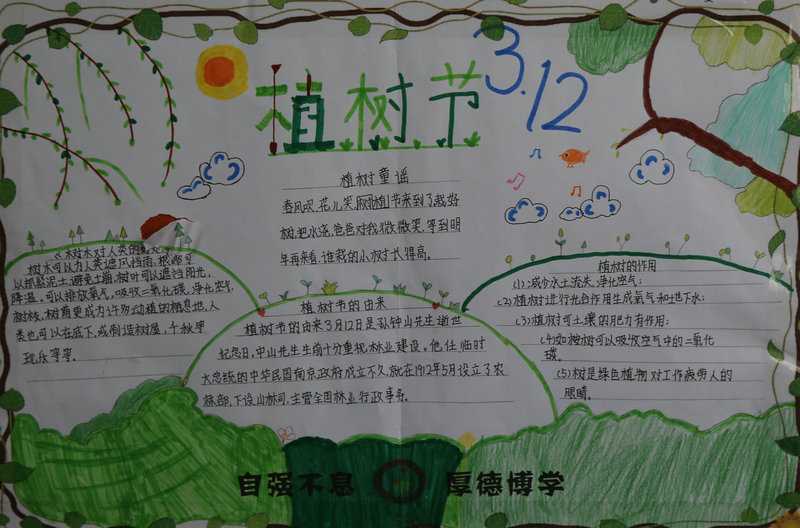 植树节
3.12
植树童谣
春风吹,花儿笑,植树节来到了,栽好
树,把水浇,爸爸对我微微笑,等到明
年再来看,谁栽的小树长得高。
树木对人类的
树木可以为人类遮风挡雨,根部可
以抓紧泥土避免土崩,树叶可以遮挡阳光,
降温,可以排放氧气,吸收二氧化碳,净化空气,
树枝、树角更成为许多动植的栖息地,人
类也可以在底下,或制造树屋,千秋等
玩乐等等。
植树节的由来
植树节的由来3月12日是孙钟山先生逝世
纪念日,中山先生生前十分重视林业建设。他任临时
大总统的中华民国南京政府成立不久,就在1912年5月设立了农
林部,下设山林司,主管全国林业行政事务。
植树的作用
(1)减令水土流失,净化空气;
(2)植树进行光合作用生成氧气和地下水;
(3)植树可土壤的肥力有作用;
(4)如桉树可以吸收空气中的二氧化
碳。
(5)树是绿色植物对工作疲劳人的
眼睛。
自强不息 厚德博学